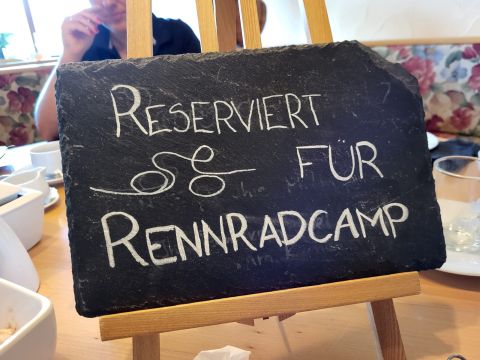 RESERVIERT
FÜR
RENNRADCAMP